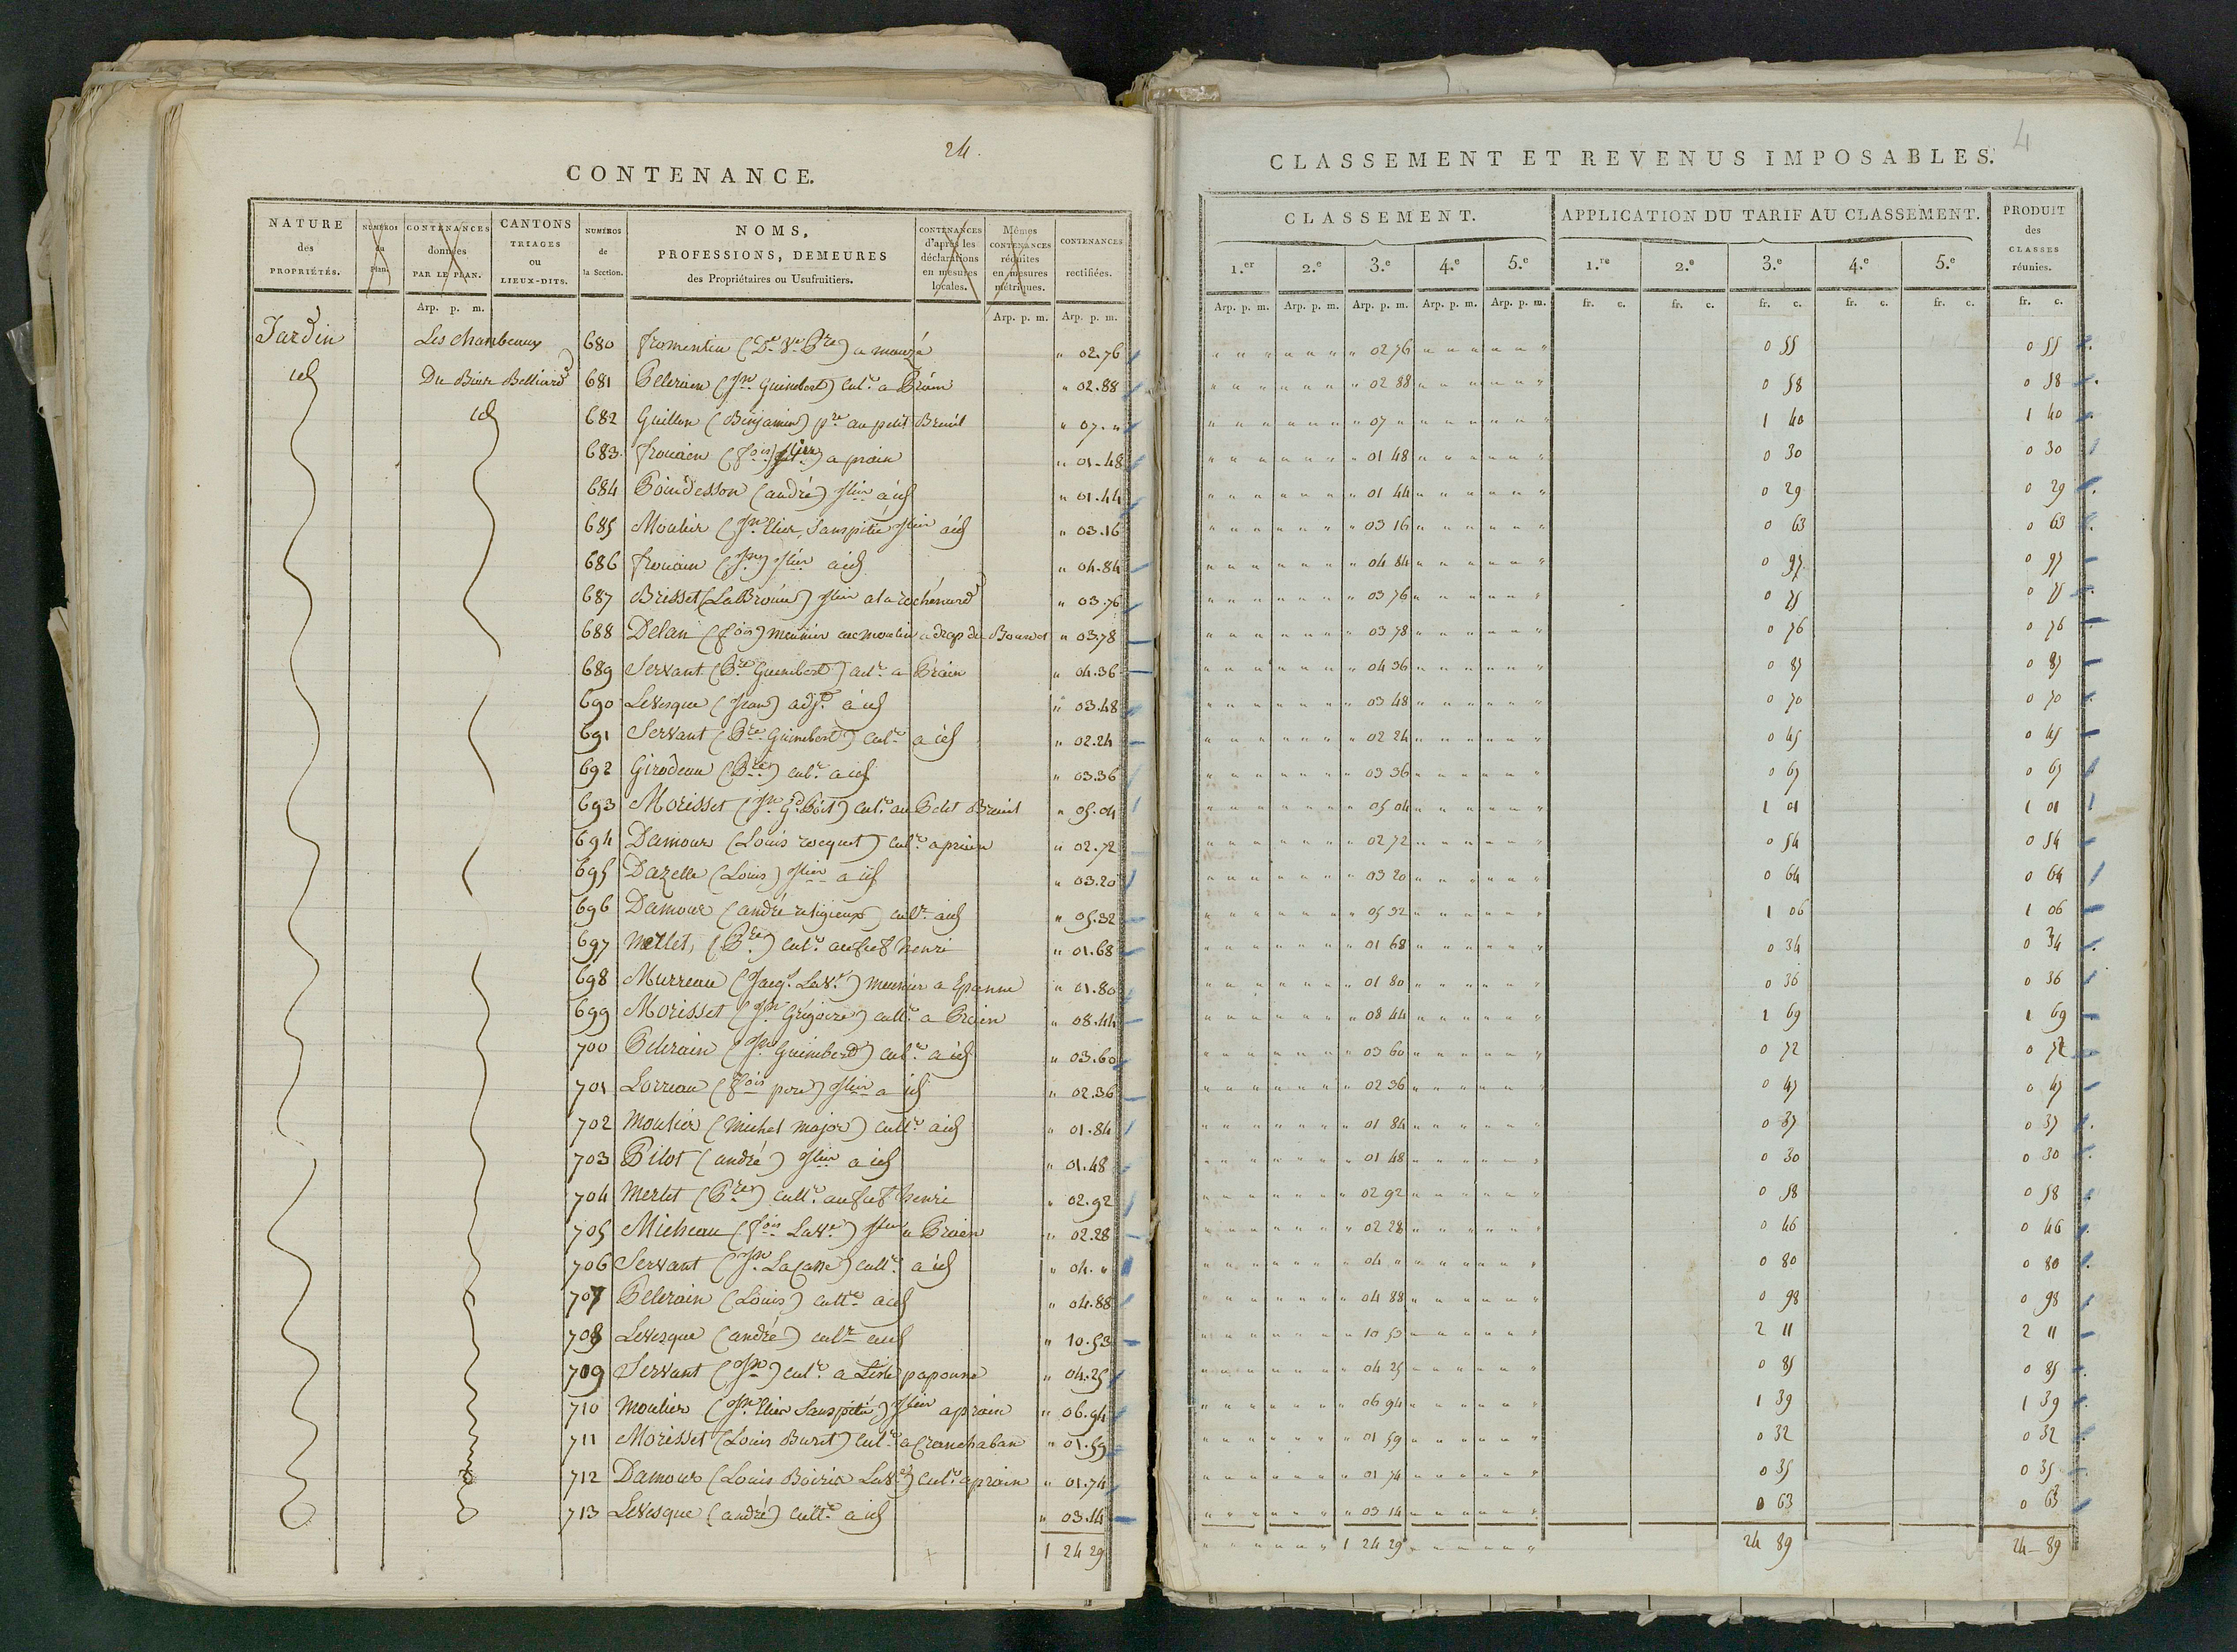 24.
CONTENANCE.
NATURE des PROPRIÉTÉS. NUMÉROS du Plan. CONTENANCES données PAR LE PLAN. CANTONS TRIAGES ou LIEUX-DITS. NUMÉROS de la Section. NOMS, PROFESSIONS, DEMEURES des Propriétaires ou Usufruitiers. CONTENANCES d'après les déclarations en mesures locales. Mêmes CONTENANCES réduites en mesures métriques. CONTENANCES rectifiées.
Arp. p. m. Arp. p. m. Arp. p. m.
Jardin Les chambeaux 680 fromentin (De Ve Pre) a mauzé " 02.76
id Du Bien Belliard 681 Pelerain (Jn Guimbert) culr a Prain " 02.88
id 682 Guillon (Binjamin) pre au petit Breuil " 07. "
683 frouien (fois) Jlier a prain " 01.48
684 Poindesson (andré) Jlier a id " 01.44
685 Moulier (Jn Elier, Sanspitié Jlier a id " 03.16
686 frouain (Jn) Jlier a id " 04.84
687 Brisset (La Brouin) Jlier a la rochénard " 03.76
688 Delan (fois) meunier au moulin a drap du Bourdet " 03.78
689 Servant (Pre Guimbert) culr a Prain " 04.36
690 Levesque (Jean) adjt a id " 03.48
691 Servant (Pre Guimbert) culr a id " 02.24
692 Girodeau (Pre) culr a id " 03.36
693 Morisset (Jn Gd Poit) culr au Petit Breuil " 05.04
694 Damour (Louis rocquet) culr a prain " 02.72
695 Dazelle (Louis) Jlier a id " 03.20
696 Damour (andré religieux) culr a id " 05.32
697 Merlet, (Pre) culr au fief henri " 01.68
698 Murreau (Jacq. La Ve) meunier a Epanne " 01.80
699 Morisset (Jn Grégoire) cultr a Prain " 08.44
700 Pelerain (Jn Guimberd) culr a id " 03.60
701 Lorreau (fois pere) Jlier a id " 02.36
702 Moulier (Michel major) cultr a id " 01.84
703 Pilot (andré) Jlier a id " 01.48
704 Merlet (Pre) cultr au fief henri " 02.92
705 Micheau (fois La Ve) Jlier a Prain " 02.28
706 Servant (Jn La Casse) cultr a id " 04. "
707 Pelerain (Louis) cultr a id " 04.88
708 Levesque (andré) culr a id " 10.53
709 Servant (Jn) culr a Liste paponne " 04.25
710 Moulier (Jn Elier Sanspitié) Jlier a prain " 06.94
711 Morisset (Louis Buret) culr a Cramchaban " 01.59
712 Damour (Louis Boirier La Ve) culr a prain " 01.74
713 Levesque (andré) cultr a id " 03.14
1 24 29
4
CLASSEMENT ET REVENUS IMPOSABLES.
CLASSEMENT. APPLICATION DU TARIF AU CLASSEMENT. PRODUIT des CLASSES réunies.
1.er 2.e 3.e 4.e 5.e 1.re 2.e 3.e 4.e 5.e
Arp. p. m. Arp. p. m. Arp. p. m. Arp. p. m. Arp. p. m. fr. c. fr. c. fr. c. fr. c. fr. c. fr. c.
" 02 76 0 55 0 55
" 02 88 0 58 0 58
" 07 " 1 40 1 40
" 01 48 0 30 0 30
" 01 44 0 29 0 29
" 03 16 0 63 0 63
" 04 84 0 97 0 97
" 03 76 0 75 0 75
" 03 78 0 76 0 76
" 04 36 0 87 0 87
" 03 48 0 70 0 70
" 02 24 0 45 0 45
" 03 36 0 67 0 67
" 05 04 1 01 1 01
" 02 72 0 54 0 54
" 03 20 0 64 0 64
" 05 32 1 06 1 06
" 01 68 0 34 0 34
" 01 80 0 36 0 36
" 08 44 1 69 1 69
" 03 60 0 72 0 72
" 02 36 0 47 0 47
" 01 84 0 37 0 37
" 01 48 0 30 0 30
" 02 92 0 58 0 58
" 02 28 0 46 0 46
" 04 " 0 80 0 80
" 04 88 0 98 0 98
" 10 53 2 11 2 11
" 04 25 0 85 0 85
" 06 94 1 39 1 39
" 01 59 0 32 0 32
" 01 74 0 35 0 35
" 03 14 0 63 0 63
1 24 29 24 89 24 89